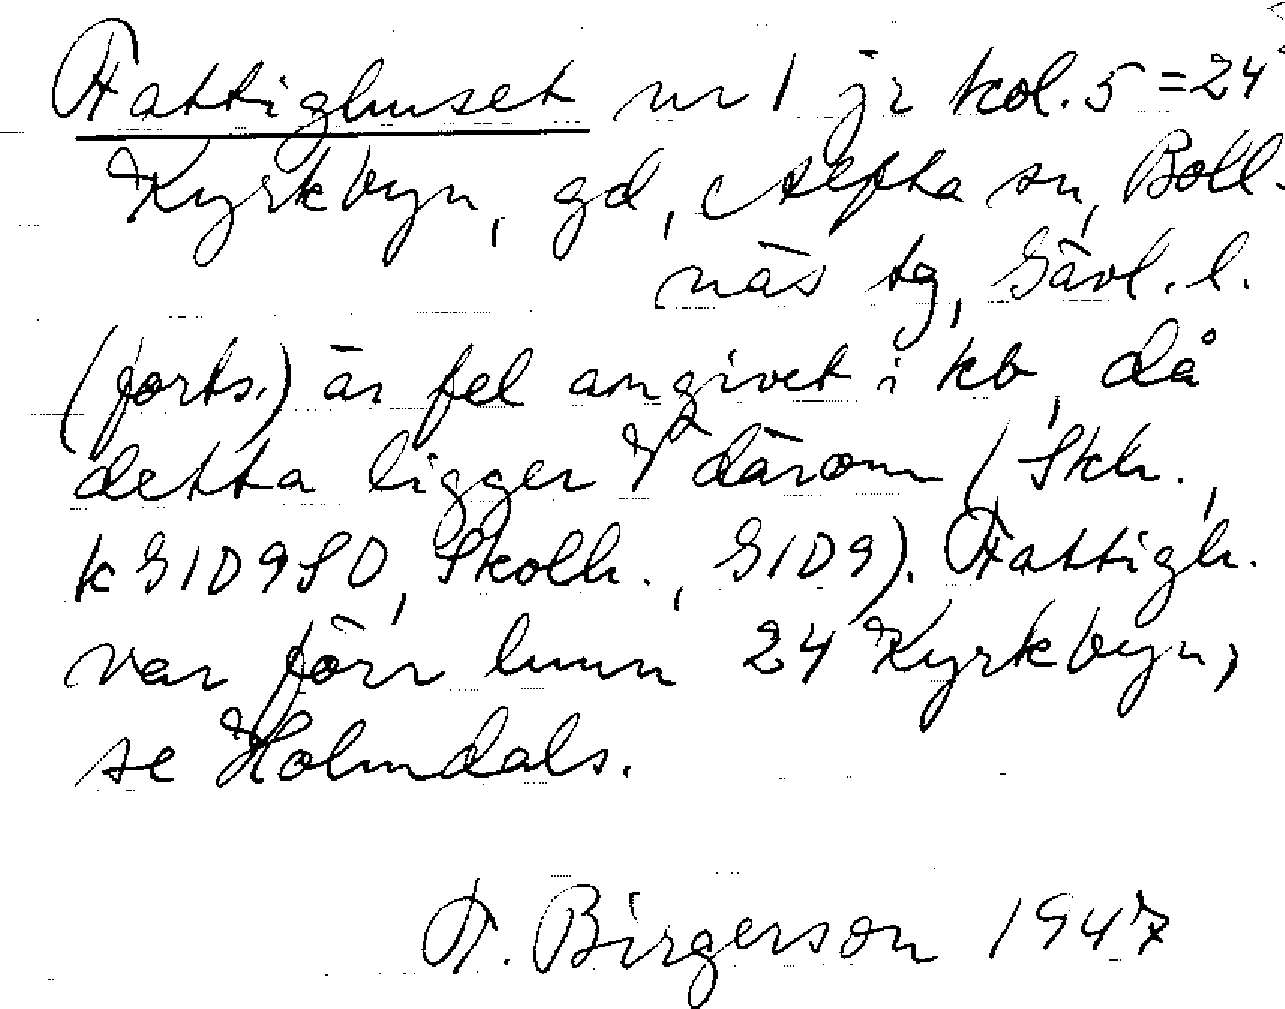 Fattighuset nr 1 jr kol. 5 = 24
Kyrkbyn, gd, Alfta sn, Boll-
näs tg, Gävl. l.
(forts.) är fel angivet i kb, då
detta ligger V därom (Skh.,
k G1D9SO, Skolh., G1D9). Fattigh.
var förr inom 24 Kyrkbyn,
se Holmdals.
F. Birgerson 1947